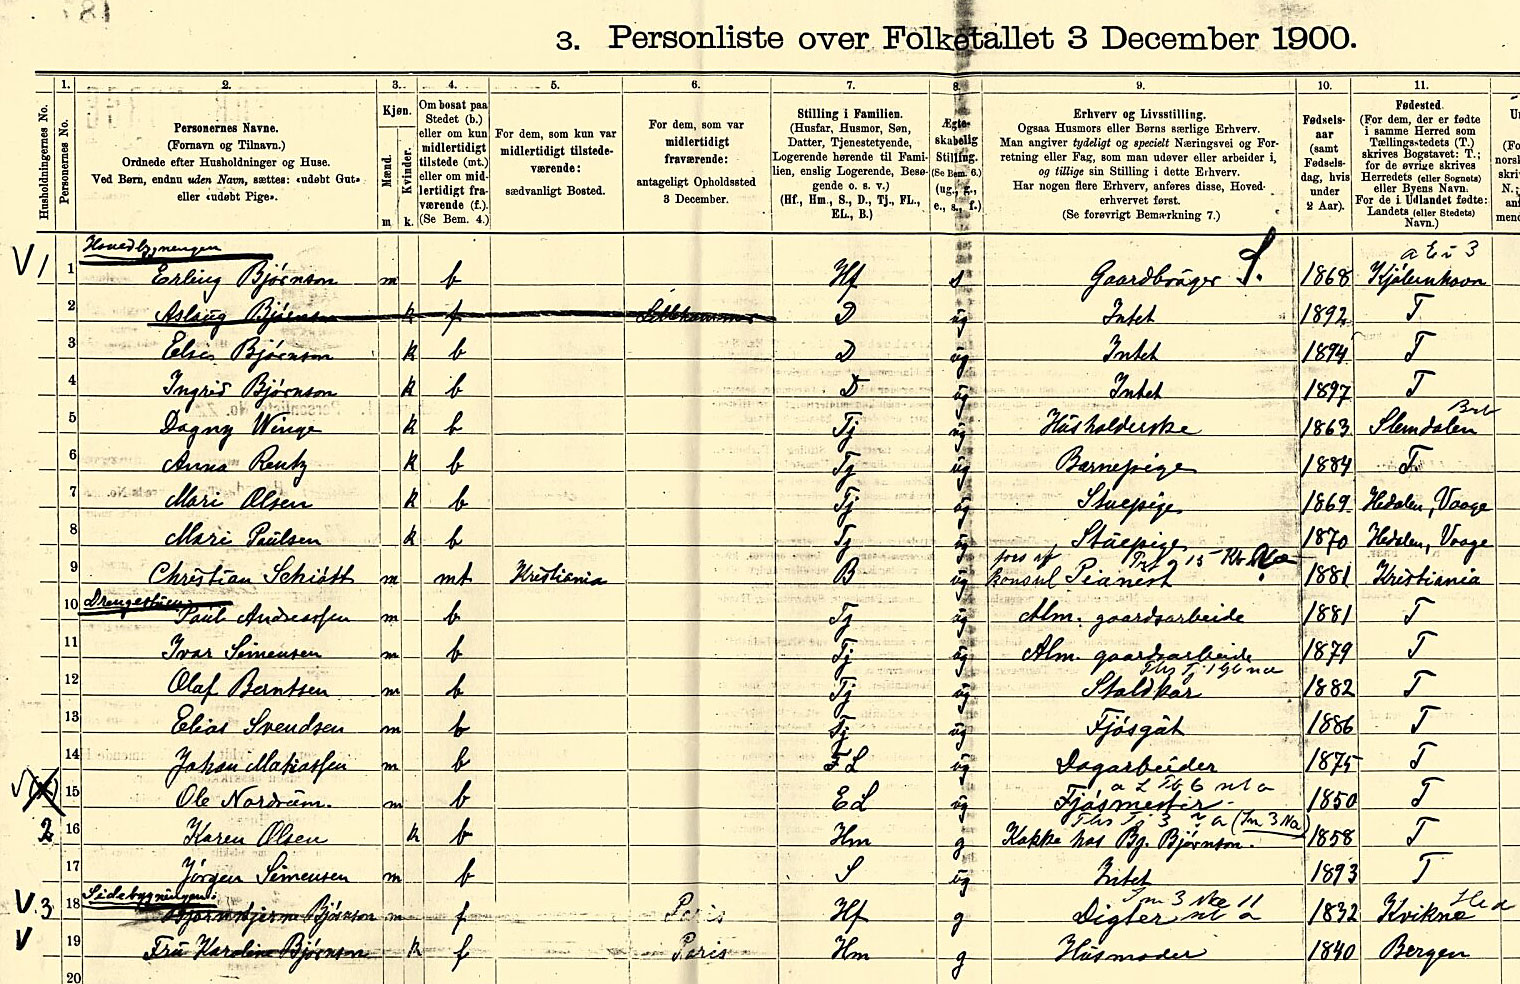 3. Personliste over Folketallet 3 December 1900.
1. 2. 3. 4. 5. 6. 7. 8. 9. 10. 11.
Husholdningernes No.
Personernes No.
Personernes Navne.
(Fornavn og Tilnavn.)
Ordnede efter Husholdninger og Huse.
Ved Børn, endnu uden Navn, sættes: «udøbt Gut»
eller «udøbt Pige».
Kjøn.
Mænd.
Kvinder.
m k.
Om bosat paa
Stedet (b.)
eller om kun
midlertidigt
tilstede (mt.)
eller om mid-
lertidigt fra-
værende (f.)
(Se Bem. 4.)
For dem, som kun var
midlertidigt tilstede-
værende:
sædvanligt Bosted.
For dem, som var
midlertidigt
fraværende:
antageligt Opholdssted
3 December.
Stilling i Familien.
(Husfar, Husmor, Søn,
Datter, Tjenestetyende,
Logerende hørende til Fami-
lien, enslig Logerende, Besø-
gende o. s. v.)
(Hf., Hm., S., D., Tj., FL.,
EL., B.)
Ægte-
skabelig
Stilling.
(Se Bem. 6.)
(ug., g.,
e., s., f.)
Erhverv og Livsstilling.
Ogsaa Husmors eller Børns særlige Erhverv.
Man angiver tydeligt og specielt Næringsvei og For-
retning eller Fag, som man udøver eller arbeider i,
og tillige sin Stilling i dette Erhverv.
Har nogen flere Erhverv, anføres disse, Hoved-
erhvervet først.
(Se forøvrigt Bemærkning 7.)
Fødsels-
aar
(samt
Fødsels-
dag, hvis
under
2 Aar).
Fødested.
(For dem, der er fødte
i samme Herred som
Tællingsstedets (T.)
skrives Bogstavet: T.;
for de øvrige skrives
Herredets (eller Sognets)
eller Byens Navn.
For de i Udlandet fødte:
Landets (eller Stedets)
Navn.)
Hovedbygningen
1 Erling Bjørnson m b Hf s Gaardbruger 1868 Kjøbenhavn
2 Aslaug Bjørnson k f Lillehammer D ug Intet 1892 T
3 Elsie Bjørnson k b D ug Intet 1894 T
4 Ingrid Bjørnson k b D ug Intet 1897 T
5 Dagny Winge k b Tj ug Husholderske 1863 Slemdalen
6 Anna Rentz k b Tj ug Barnepige 1884 T
7 Mari Olsen k b Tj ug Stuepige 1869 Hedalen, Vaage
8 Mari Paulsen k b Tj ug Stuepige 1870 Hedalen, Vaage
9 Christian Schiøtt m mt Kristiania B ug Pianest 1881 Kristiania
Drengestuen
10 Paul Andreassen m b Tj ug Alm. gaardsarbeide 1881 T
11 Ivar Simensen m b Tj ug Alm. gaardsarbeide 1879 T
12 Olaf Berntsen m b Tj ug Staldkar 1882 T
13 Elias Svendsen m b Tj ug Fjøsgut 1886 T
14 Johan Matiassen m b FL ug Dagarbeider 1875 T
15 Ole Nordrum. m b EL ug Fjøsmester 1850 T
2 16 Karen Olsen k b Hm g Kokke hos Bj. Bjørnson. 1858 T
17 Jørgen Simensen m b S ug Intet 1893 T
Sidebygningen:
3 18 Bjørnstjerne Bjørnson m f Paris Hf g Digter 1832 Kvikne
19 Fru Karoline Bjørnson k f Paris Hm g Husmoder 1840 Bergen
20